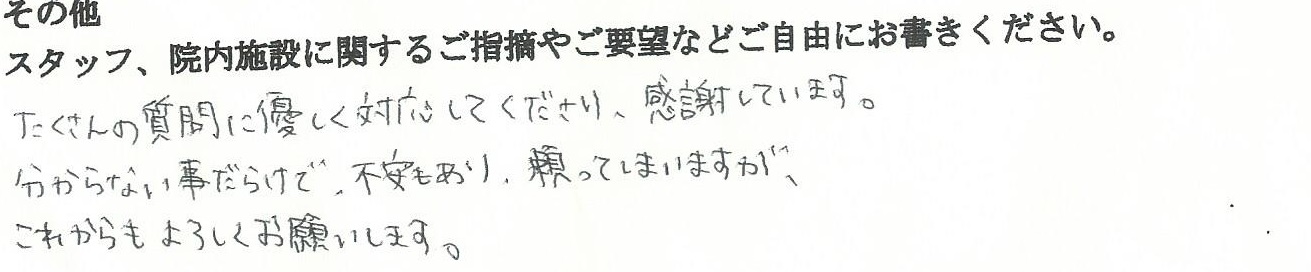 その他
スタッフ、院内施設に関するご指摘やご要望などご自由にお書きください。
たくさんの質問に優しく対応してくださり、感謝しています。
分からない事だらけで、不安もあり、頼ってしまいますが、
これからもよろしくお願いします。